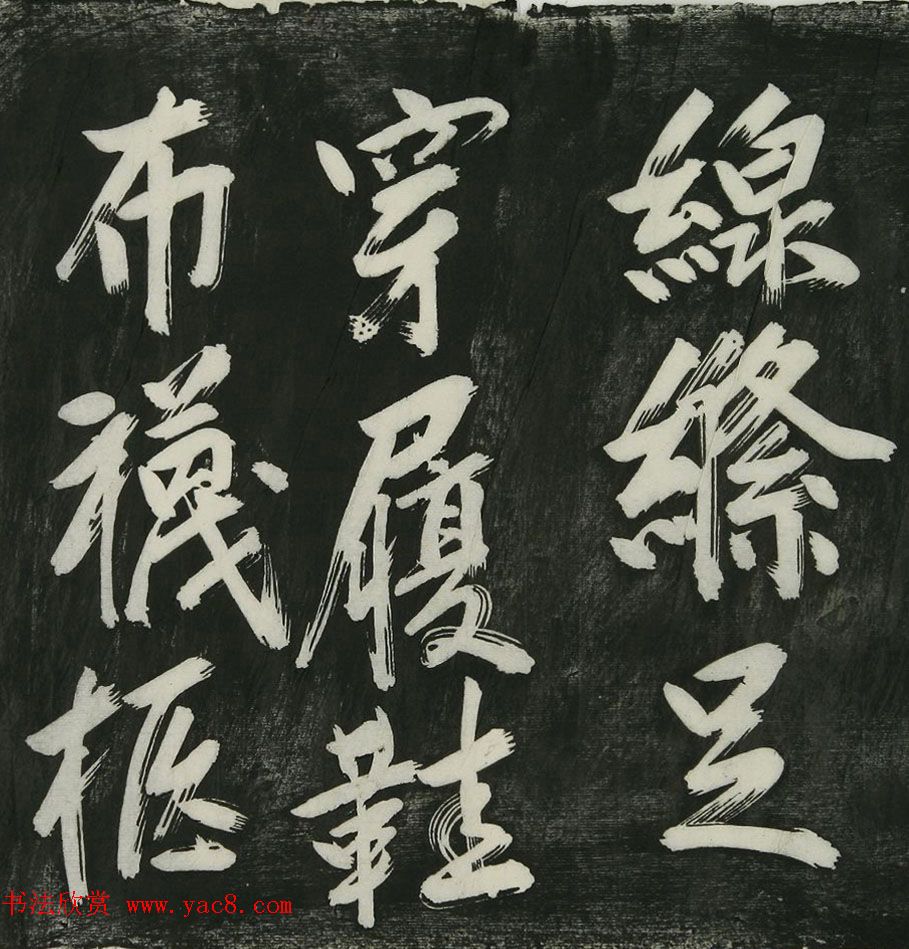 線縧足
穿履鞋
布襪
书法欣赏 www.yac8.com